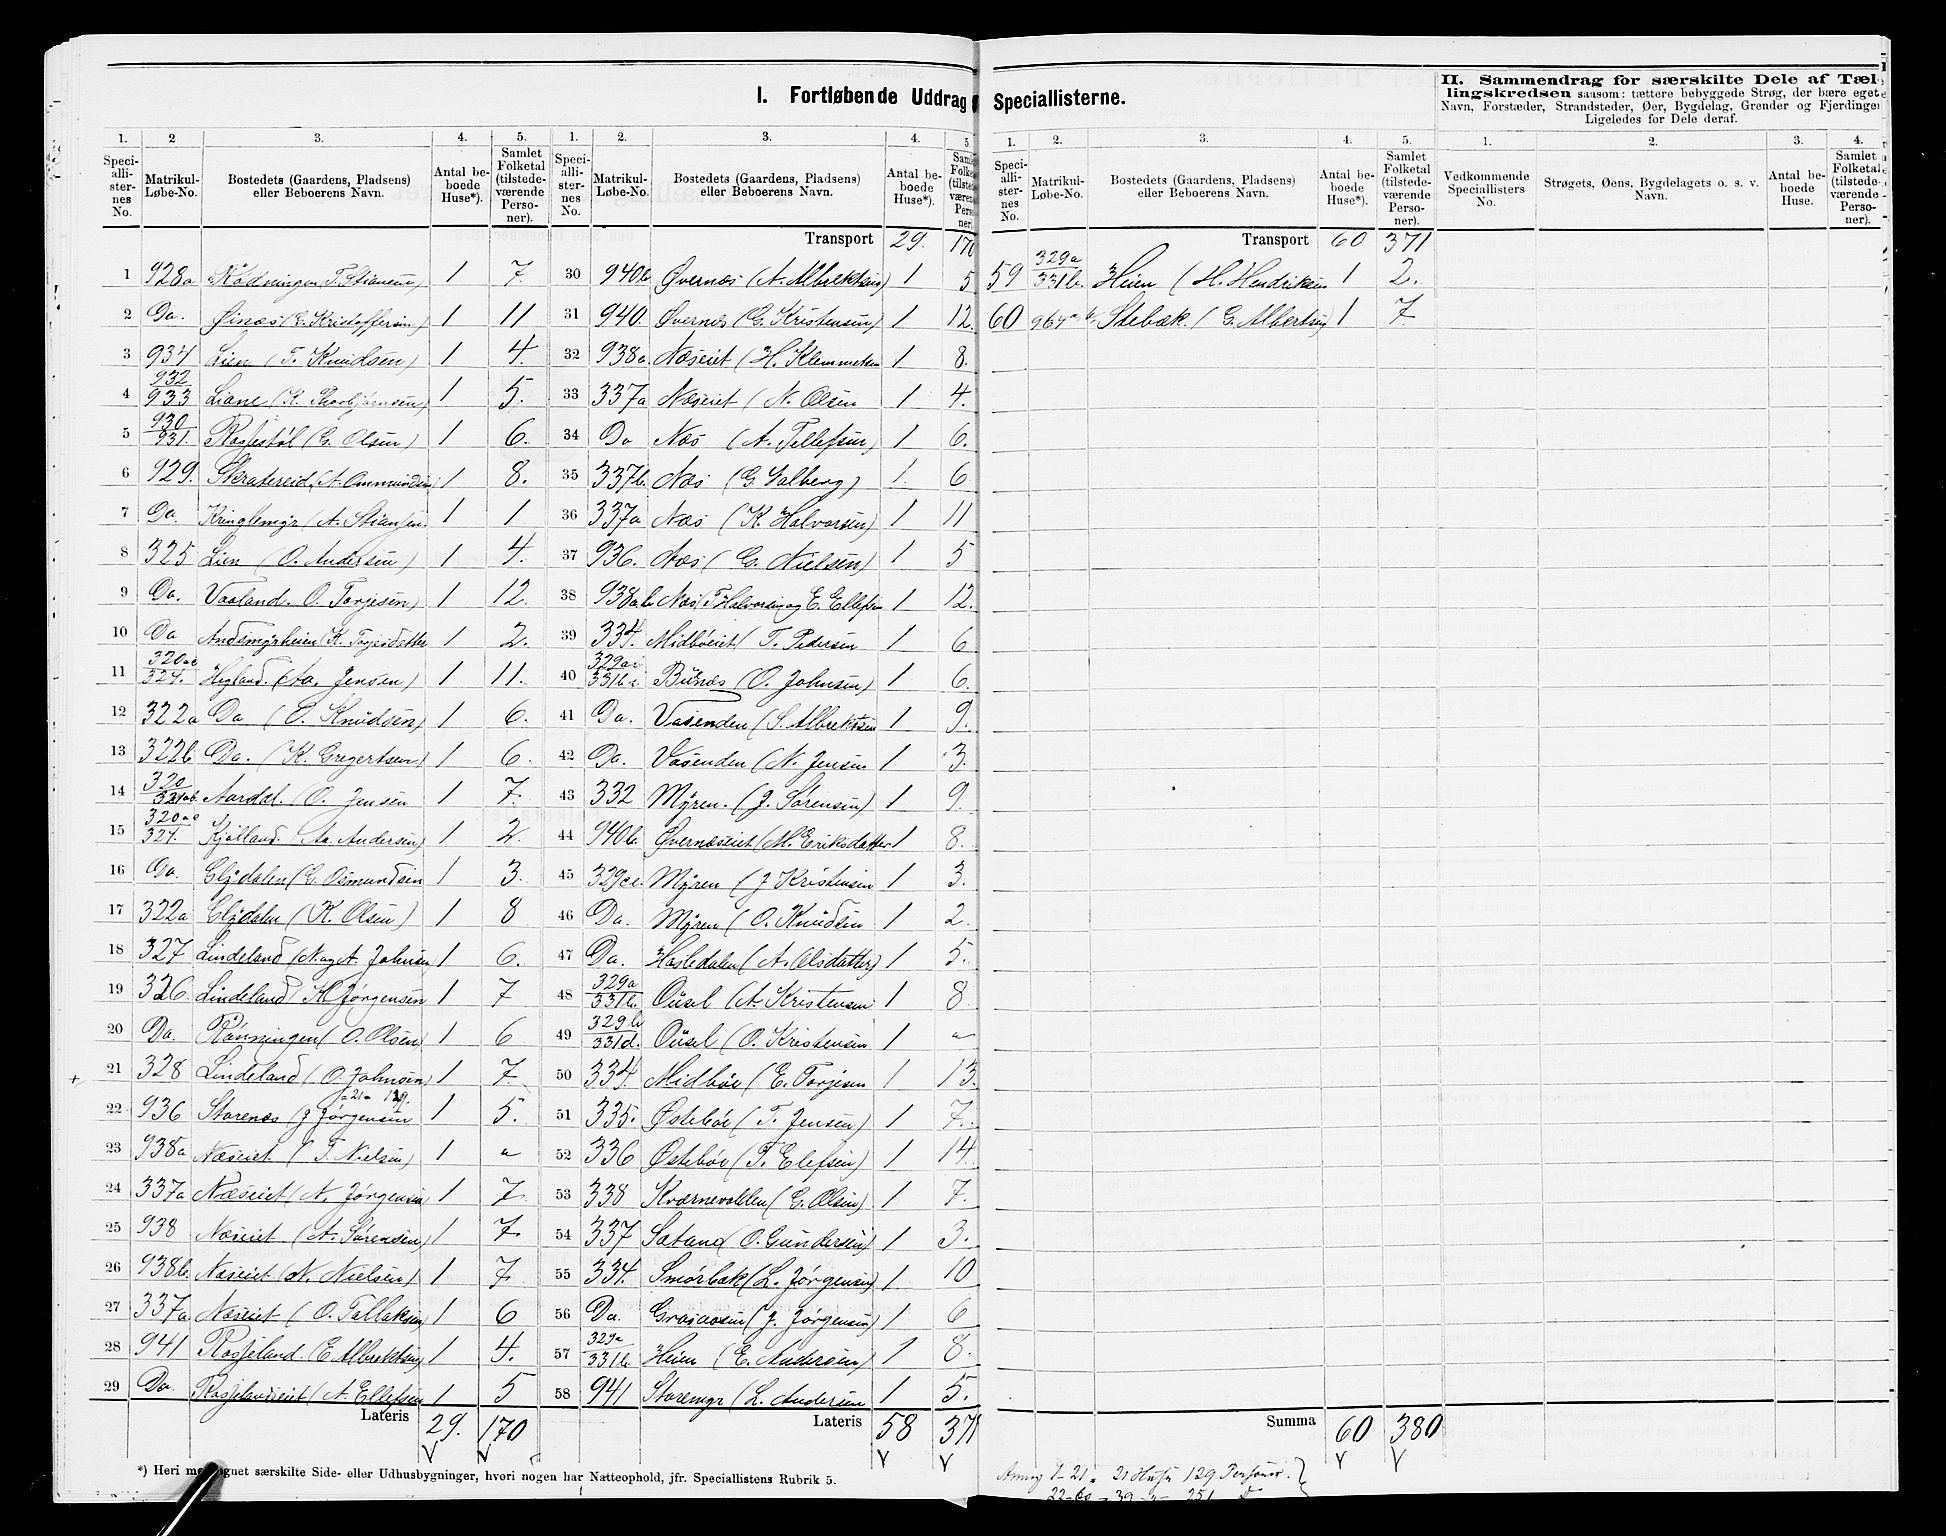 I. Fortløbende Uddrag
Speciallisterne.
II. Sammendrag for særskilte Dele af Tæl-
lingskredsen saasom: tættere bebyggede Strøg, der bære eget
Navn, Forstæder, Strandsteder, Øer, Bygdelag, Grender og Fjerdinger
Ligeledes for Dele deraf.
1. 2 3. 4. 5. 1. 2. 3. 4. 5.
Speci-alli-ster-nes No. Matrikul-Løbe-No. Bostedets (Gaardens, Pladsens) eller Beboerens Navn. Antal be-boede Huse*). Samlet Folketal (tilstede-værende Perso-ner).
Speci-alli-ster-nes No. Matrikul-Løbe-No. Bostedets (Gaardens, Pladsens) eller Beboerens Navn. Antal be-boede Huse*).
Transport 29. 170
1 928a Rødningen T. Stiansen 1 7.
2 Do. Øinæs (E. Kristoffersen) 1 11
3 934 Lien (T. Knudsen) 1 4.
4 932/933 Liane (K. Thorbjørnsen) 1 5.
5 930/931. Rossestøl (G. Olsen) 1 6.
6 929. Skratereid (A. Ommundsen) 1 8.
7 Do. Kringlemyr (A. Stiansen 1 1
8 325 Lien (O. Andersen) 1 4.
9 Do. Vaaland. O. Torjesen) 1 12.
10 Do Andsmyrheien (K. Torjesdatter 1 2.
11 320ac/324. Hegland. (Aa. Jensen) 1 11.
12 322a Do (E. Knudsen) 1 6.
13 322b Do. (K. Gregertsen) 1 6.
14 320/321ab. Aardal. O. Jensen 1 7.
15 320ac/324. Kjølland. (Aa. Andersen) 1 2.
16 Do. Elgdalen (G. Osmundsen 1 3.
17 322a Elgdalen (K. Olsen) 1 8
18 327 Lindeland (N. og A. Johnsen 1 6.
19 326. Lindeland K Jørgensen 1 7
20 Do. Rønningen (O. Olsen) 1 6
21 328 Lindeland (O. Johnsen) 1 7
= 21 = 129.
22 936 Storenæs (J Jørgensen 1 5.
23 938a Næseiet (T. Nielsen) 1 "
24 337a Næseiet (N. Jørgensen 1 7.
25 938 Næseiet (A. Sørensen) 1 7
26 938b. Næseiet (N. Nielsen) 1 7.
27 337a Næseiet (O. Tallaksen) 1 6
28 941 Rosseland. (E Albrektsen) 1 4.
29 Do. Rosselandseiet (A. Ellefsen 1 5
Lateris 29. 170
30 940b. Øvernæs (A. Albrektsen) 1 5
31 940. Øvernæs (G. Kristensen) 1 12.
32 938a. Næseiet (H. Klemmetsen 1 8.
33 337a Næseiet (N. Olsen 1 4.
34 Do Næs (A. Tellefsen) 1 6.
35 337b. Næs (G. Salberg) 1. 6
36 337a Næs (K. Halvorsen) 1 11
37 936. Næs (G. Nielsen) 1 5
38 938ab Næs (T Halvorsen og E. Ellefsen 1 12.
39 334. Midbøeiet (T. Pedersen 1 6
40 329ac/331b. Buenæs (O. Johnsen) 1 6.
41 Do. Vasenden (S. Albrektsen 1 9.
42 Do. Vasenden (N. Jensen 1 3.
43 332 Myren. (J. Sørensen) 1 9.
44 940b. Øvernæseiet (M. Eriksdatter 1 8.
45 329ce. Myren (J Kristensen 1 3.
46 Do. Myren (O. Knudsen 1 2
47 Do. Hasledalen (A. Olsdatter) 1 5.
48 329a/331b. Ousel (A. Kristensen 1 8
49 329b/331d. Ousel (O. Kristensen 1 "
50 334. Midbøe (E. Torjesen 1 13.
51 335. Østebøe (T. Jensen) 1 7.
52 336 Østebøe (T. Elefsen) 1 14.
53 338 Kvernevolden (G. Olsen) 1 7.
54 337 Satand (O. Gundersen) 1 3.
55 334. Smørbæk (L. Jørgensen) 1. 10
56 Do. Grasaasen (J. Jørgensen) 1 6
57 329a/331b. Heien (E. Andersen) 1 8.
58 941 Storemyr (L. Andersen 1 5.
Lateris 58 371
*) Heri medregnet særskilte Side- eller Udhusbygninger, hvori nogen har Natteophold, jfr. Speciallistens Rubrik 5.
1. 2. 3. 4. 5. 1. 2. 3. 4.
Speci-alli-ster-nes No. Matrikul-Løbe-No. Bostedets (Gaardens, Pladsens) eller Beboerens Navn. Antal be-boede Huse*). Samlet Folketal (tilstede-værende Perso-ner).
Vedkommende Speciallisters No. Strøgets, Øens, Bygdelagets o. s. v. Navn. Antal be-boede Huse. Samlet Folketal (tilstede-værende Perso-ner).
Transport 60 371
59 329a/331b. Heien (H. Hendriksen 1 2.
60 964a Stebæk. (G. Albertsen 1 7.
Summa 60 380
1-21 = 21 Huse 129 Personer.
22-60 = 39 251